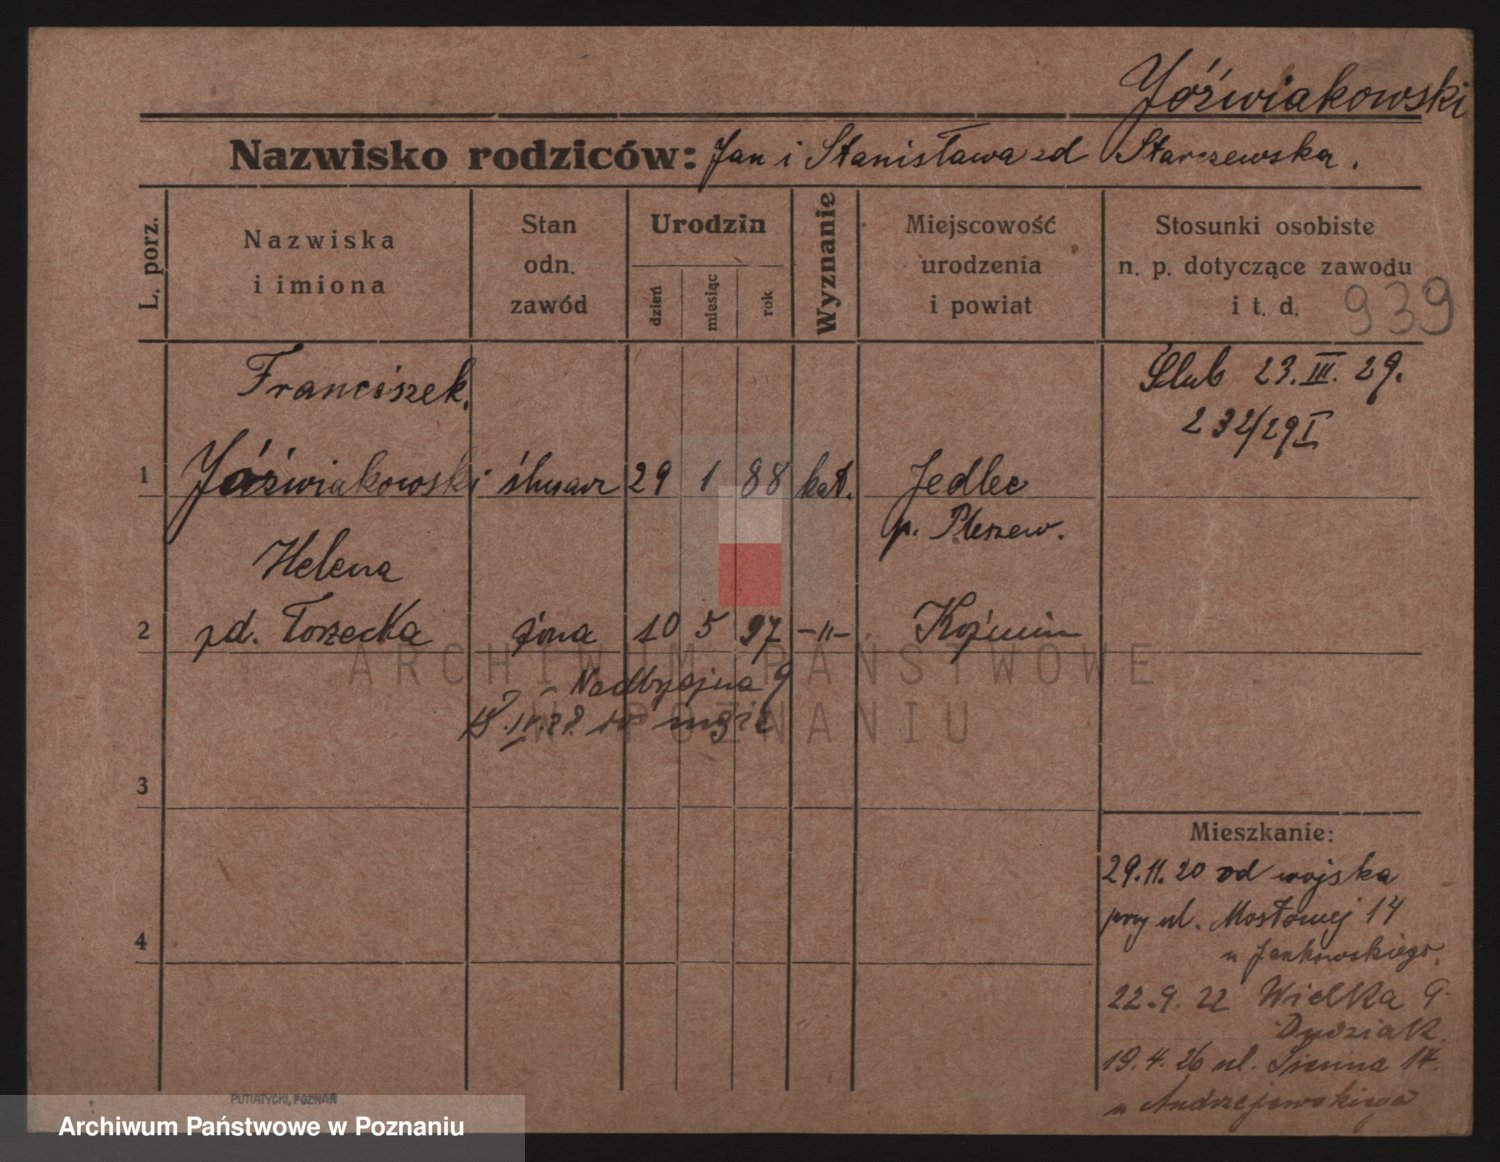 Jóźwiakowski
Nazwisko rodziców: Jan i Stanisława zd Starczewska.
L. porz.
Nazwiska
i imiona
Stan
odn.
zawód
Urodzin
dzień
miesiąc
rok
Wyznanie
Miejscowość
urodzenia
i powiat
Stosunki osobiste
n. p. dotyczące zawodu
i t. d.
939
Franciszek.
Ślub 23.III.29.
232/29 I
1 Jóźwiakowski ślusarz 29 1 88 kat. Jedlec
p. Pleszew.
Helena
2 zd. Torzecka żona 10 5 97 -"- Koźmin
Nadbrzeżna 9
3
4
Mieszkanie:
29.11.20 od wojska
przy ul. Mostowej 14
u Jankowskiego.
22.9.22 Wielka 9
Dudziak
19.4.26 ul. Sienna 14.
u Andrzejewskiego
PUTIATYCKI, POZNAŃ
ARCHIWUM PAŃSTWOWE
W POZNANIU
Archiwum Państwowe w Poznaniu